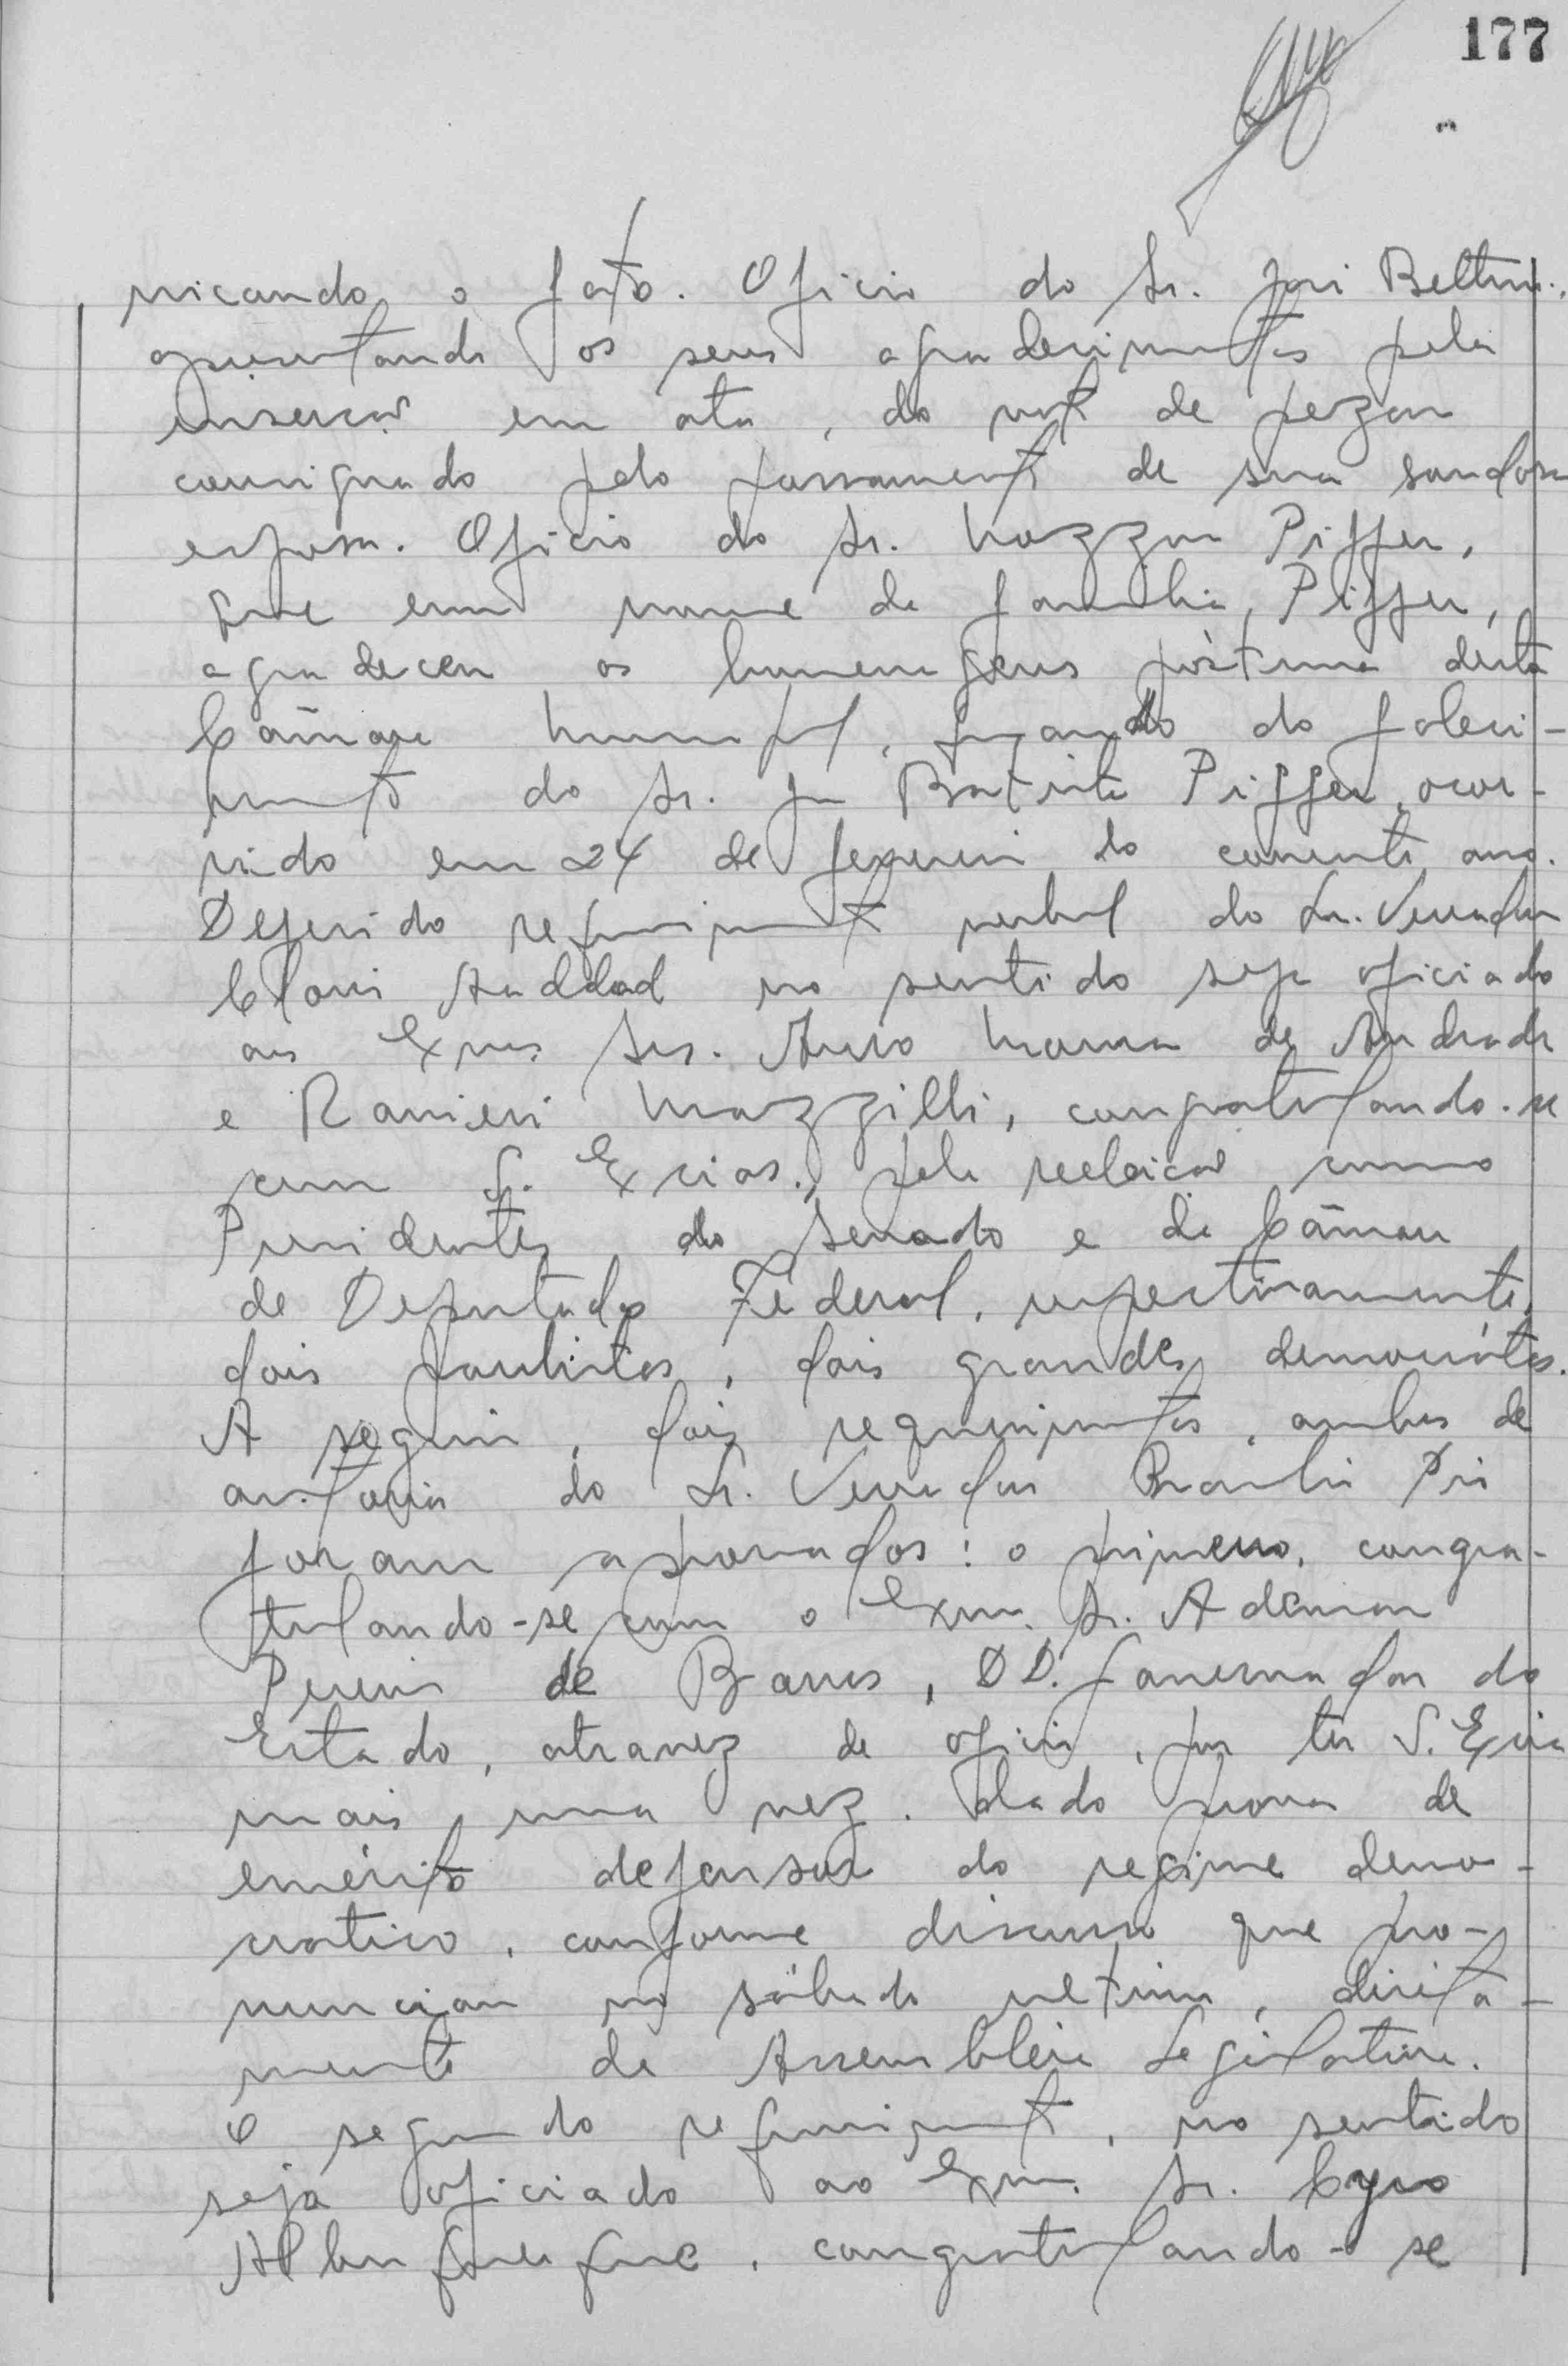 177
nicando o fato. Oficio do Sr. José Beltrin.,
apresentando os seus agradecimentos pela
inserção em ata, do voto de pezar
consignado pelo passamento de sua saudosa
esposa. Oficio do Sr. Piffer,
que em nome da familia Piffer,
agradeceu as homenagens póstuma desta
Câmara Municipal, quando do faleci-
mento do Sr. Batista Piffer, ocor-
rido em 24 de fevereiro do corrente ano.
Deferido requerimento verbal do Sr. Vereador
Haddad no sentido seja oficiado
aos Exmos Srs. Auro Moura de Andrade
e Ranieri Mazzilli, congratulando-se
com S. Excias., pela reeleição como
Presidentes do Senado e da Câmara
de Deputados Federal, respectivamente,
dois paulistas, dois grandes democratas.
A seguir, dois requerimentos, ambos de
autoria do Sr. Vereador
foram aprovados: o primeiro, congra-
tulando-se com o Exmo. Sr. Ademar
Pereira de Barros, DD. Governador do
Estado, atravez de oficio, por ter S. Excia
mais uma vez, dado prova de
emérito defensor do regime demo-
cratico, conforme discurso que pro-
nunciou no sábado ultimo, direta-
mente da Assembléia Legislativa.
O segundo requerimento, no sentido
seja oficiado ao Exmo. Sr. Cyro
Albuquerque, congratulando-se